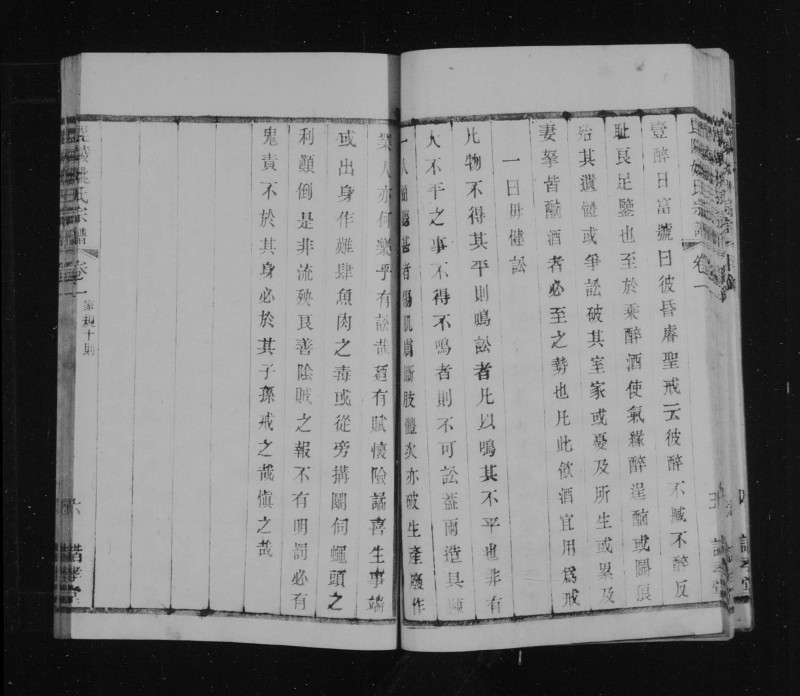 壹醉日富號曰彼昏齊聖戒云彼醉不臧不醉反
恥良足鑒也至於乘醉酒使氣緣醉逞酗或鬬狠
殆其遺體或爭訟破其室家或憂及所生或累及
妻孥皆酗酒者必至之勢也凡此飲酒宜用為戒
一曰毋健訟
凡物不得其平則鳴訟者凡以鳴其不平也非有
大不平之事不得不鳴者則不可訟蓋兩造具陳
一人 者傷肌膚斷肢體次亦破生產廢作
業人亦何樂乎有訟哉 有賦懷險譎喜生事端
或出身作難肆魚肉之毒或從旁搆鬬伺蠅頭之
利顛倒是非流殃良善陰賊之報不有明罰必有
鬼責不於其身必於其子孫戒之哉慎之哉
姚氏宗譜
卷一
家規十則
六